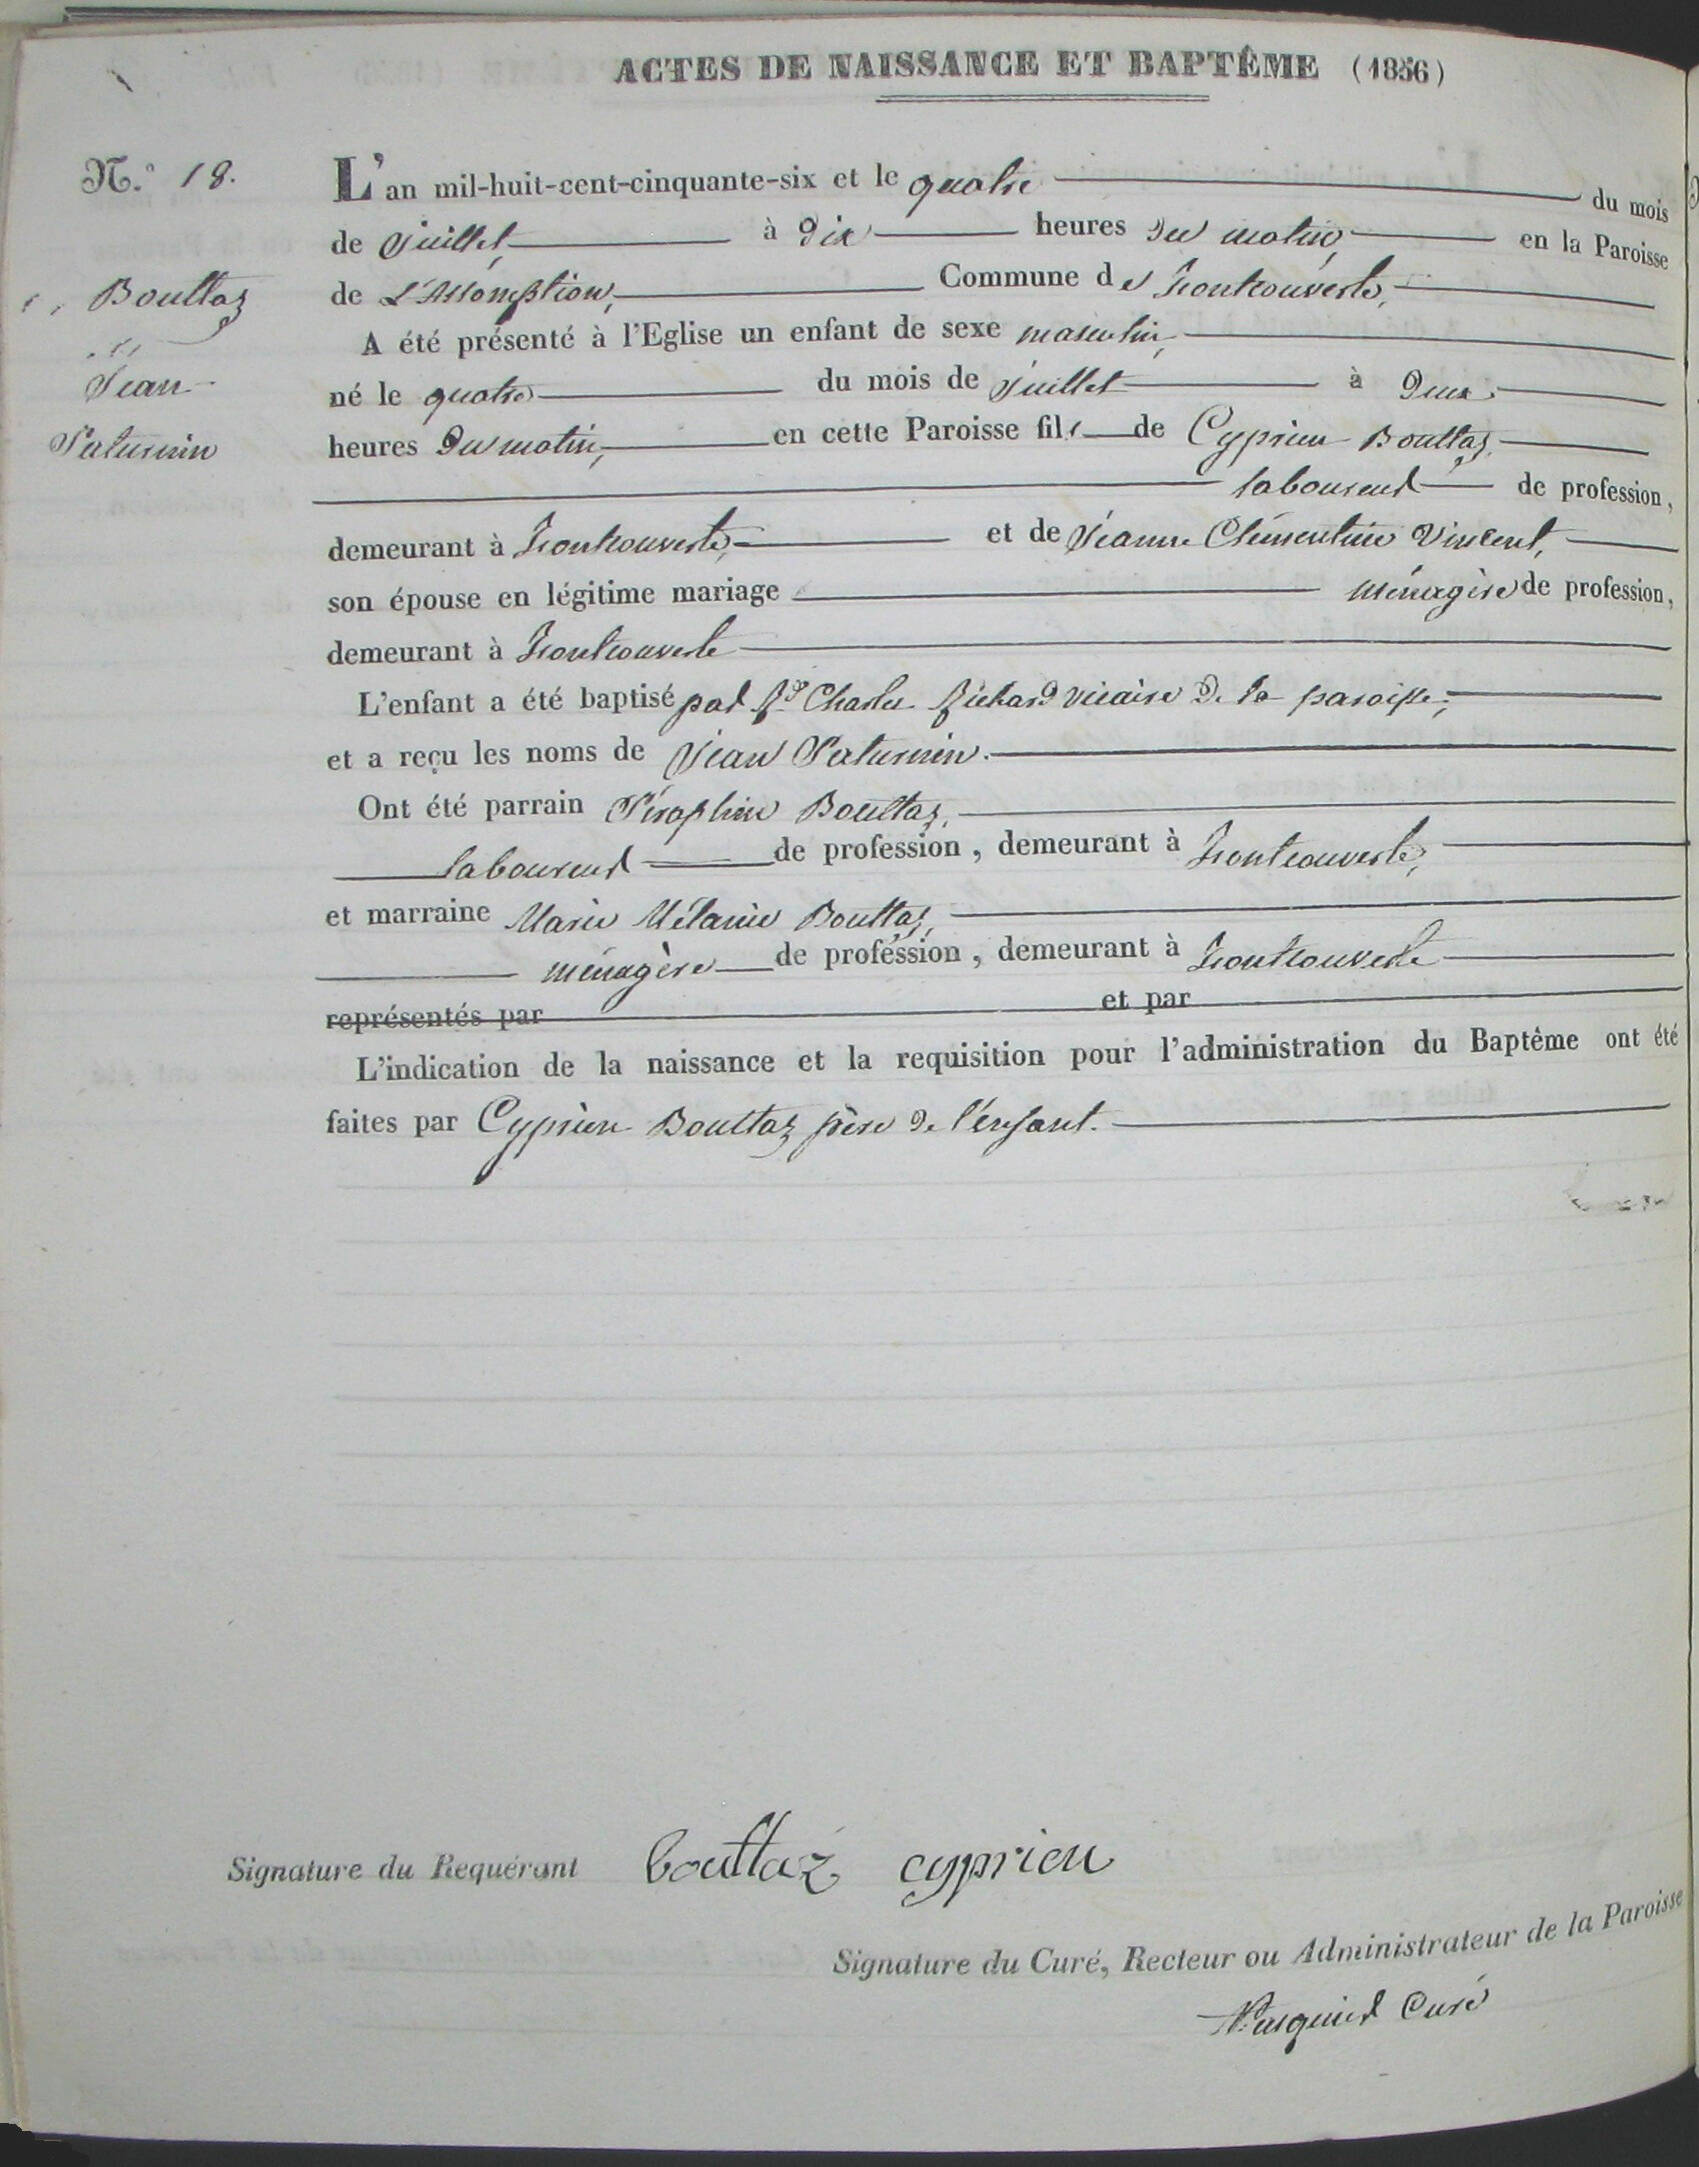 ACTES DE NAISSANCE ET BAPTÊME (1856)
N.° 18.
Bouttaz
Jean
Saturnin
L'an mil-huit-cent-cinquante-six et le quatre du mois
de juillet, à dix heures du matin, en la Paroisse
de L'Assomption, Commune de Frontrouverte,
A été présenté à l'Eglise un enfant de sexe masculin,
né le quatre du mois de juillet à deux
heures du matin, en cette Paroisse fils de Cyprien Bouttaz,
laboureur de profession,
demeurant à Frontrouverte, et de Jeanne Clémentine Vincent,
son épouse en légitime mariage ménagère de profession,
demeurant à Frontrouverte
L'enfant a été baptisé par Rd Charles Richard vicaire de la paroisse,
et a reçu les noms de Jean Saturnin.
Ont été parrain Séraphin Bouttaz,
laboureur de profession, demeurant à Frontrouverte,
et marraine Marie Mélanie Bouttaz,
ménagère de profession, demeurant à Frontrouverte
représentés par et par
L'indication de la naissance et la requisition pour l'administration du Baptême ont été
faites par Cyprien Bouttaz père de l'enfant.
Signature du Requérant bouttaz cyprien
Signature du Curé, Recteur ou Administrateur de la Paroisse
Curé